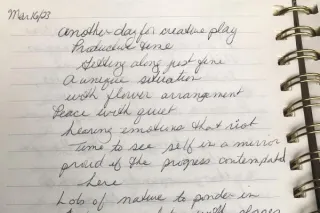 Mar 16/23
another day for creative play
Productive time
Getting along just fine
A unique situation
with flower arrangement
Peace with quiet
hearing emotions that riot
time to see self in a mirror
proud of the progress contemplated
here
Lots of nature to ponder in
places